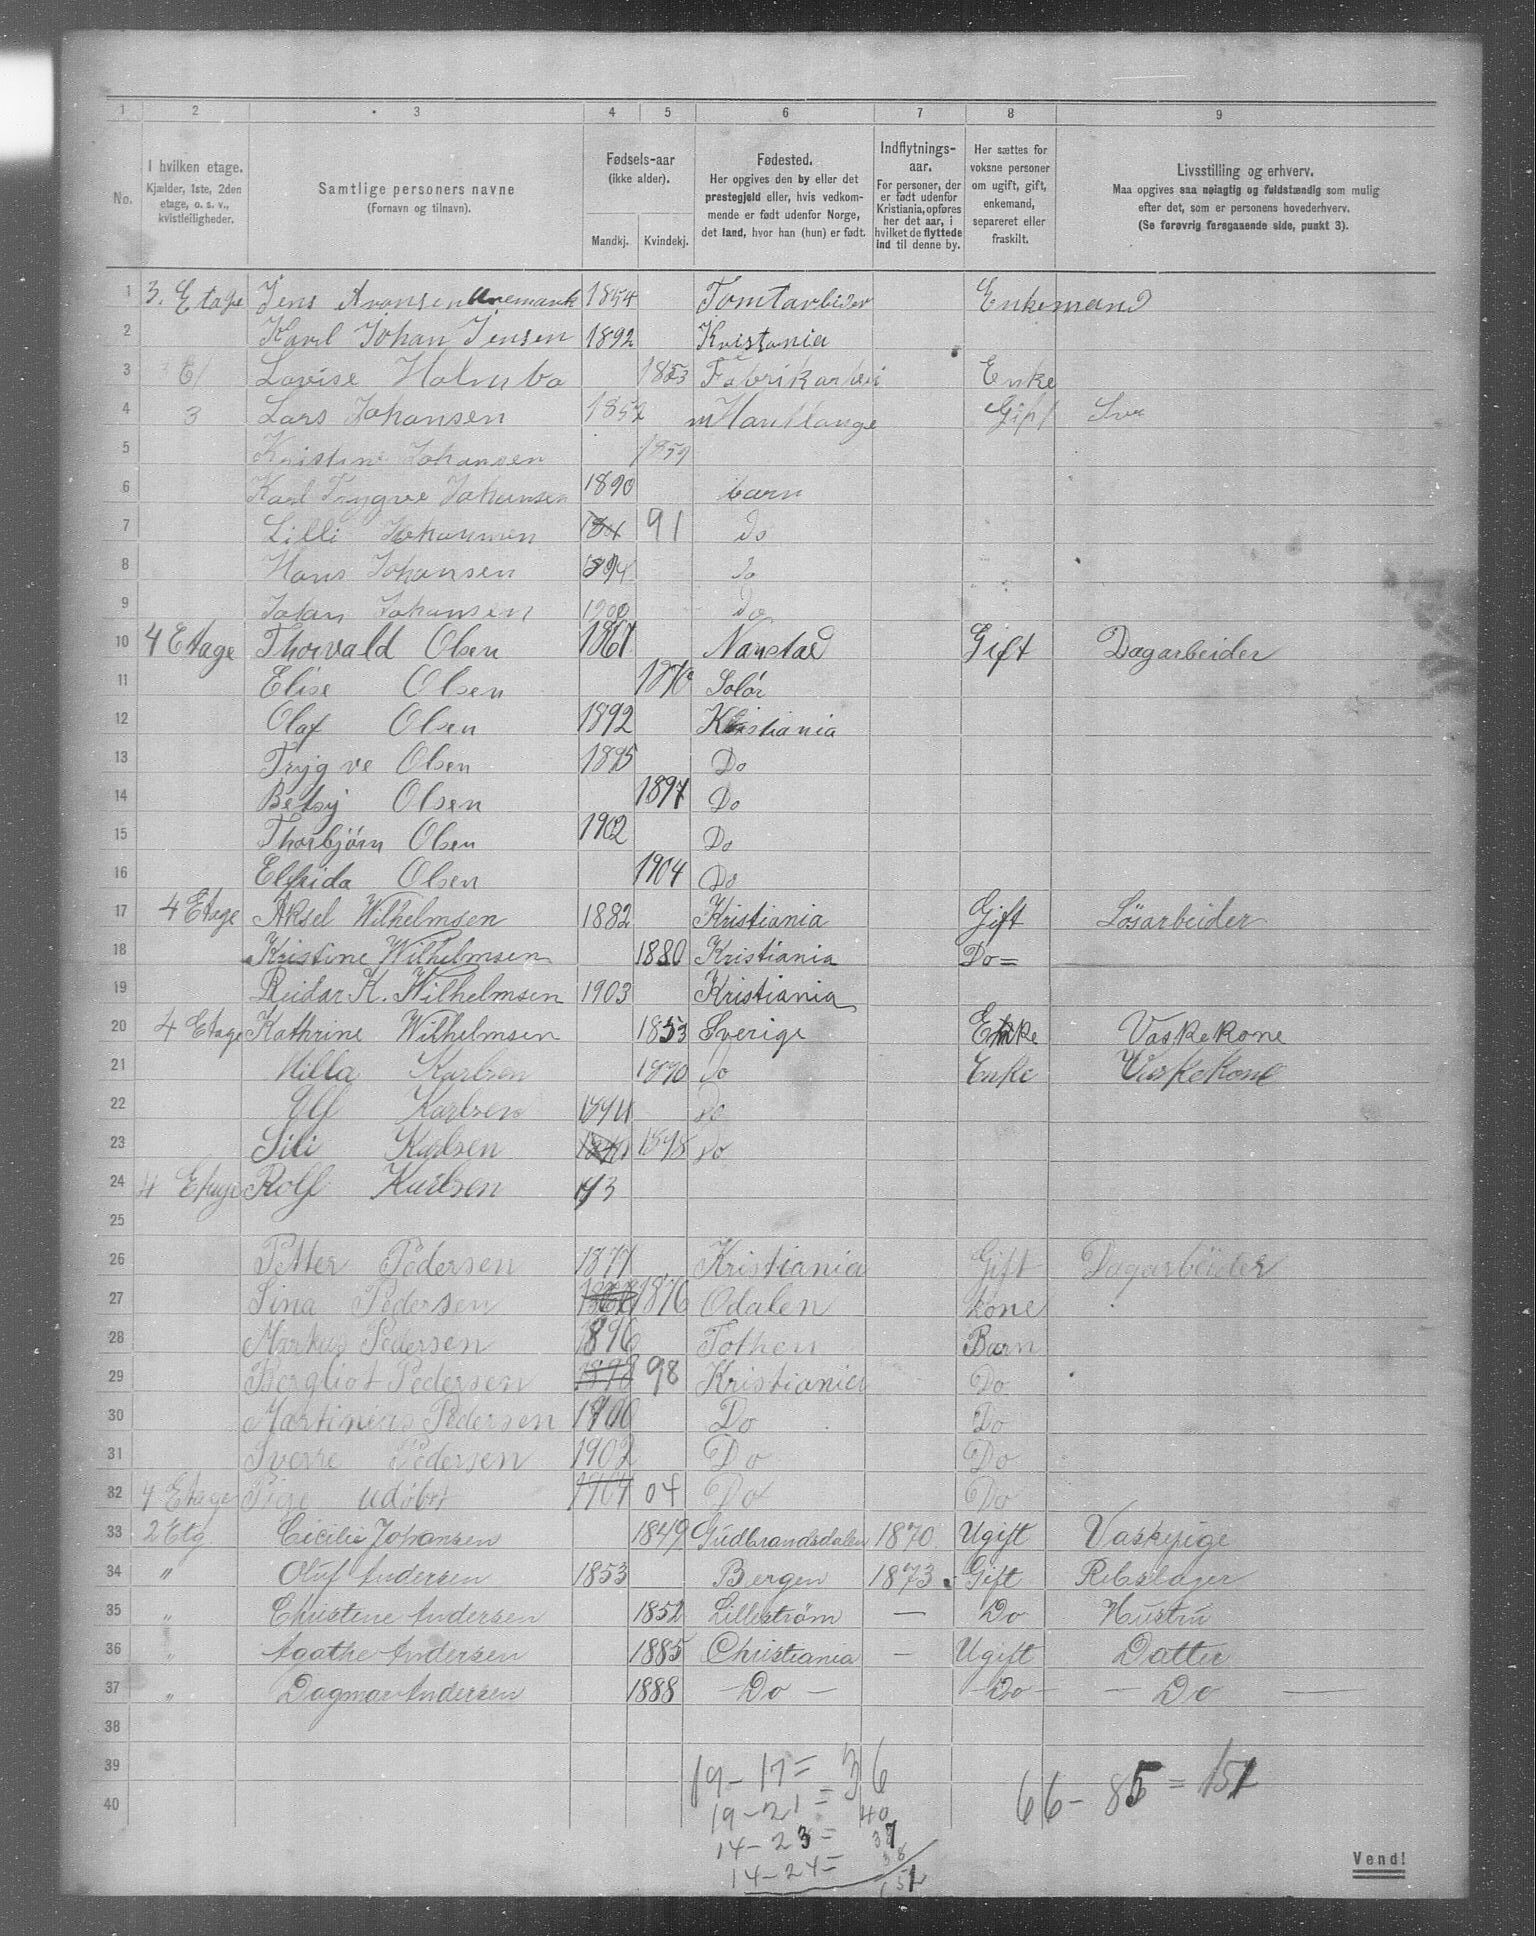 1 2 3 4 5 6 7 8 9
No.
I hvilken etage.
Kjælder, 1ste, 2den
etage, o. s. v.,
kvistleiligheder.
Samtlige personers navne
(Fornavn og tilnavn).
Fødsels-aar
(ikke alder).
Mandkj. Kvindekj.
Fødested.
Her opgives den by eller det
prestegjeld eller, hvis vedkom-
mende er født udenfor Norge,
det land, hvor han (hun) er født.
Indflytnings-
aar.
For personer, der
er født udenfor
Kristiania, opføres
her det aar, i
hvilket de flyttede
ind til denne by.
Her sættes for
voksne personer
om ugift, gift,
enkemand,
separeret eller
fraskilt.
Livsstilling og erhverv.
Maa opgives saa nøiagtig og fuldstændig som mulig
efter det, som er personens hovederhverv.
(Se forøvrig foregaaende side, punkt 3).
1 3. Etage Jens Aronsen Aremark 1854 Tomtarbider Enkemand
2 Karl Johan Jensen 1892 Kristania
3 Lovise Holmbo 1853 Fabrikarbei Enke
4 3 Lars Johansen Gift
5 Kristine Johansen 1859
6 Karl Trygve Johansen 1890 barn
7 Lilli 91 Do
8 Hans Johansen 1894 Do
9 Johan Johansen 1900 Do
10 4 Etage Thorvald Olsen 1867 Nanstad Gift Dagarbeider
11 Elise Olsen 1870 Solør
12 Olaf Olsen 1892 Kristiania
13 Trygve Olsen 1895 Do
14 Betsy Olsen 1897 Do
15 Thorbjørn Olsen 1902 Do
16 Elfrida Olsen 1904 Do
17 4 Etage Aksel Wilhelmsen 1882 Kristiania Gift Løsarbeider
18 Kristine Wilhelmsen 1880 Kristiania Do=
19 Reidar K. Wilhelmsen 1903 Kristiania
20 4 Etage Kathrine Wilhelmsen 1853 Sverige Enke Vaskekone
21 Milla Karlsen 1870 Do Enke Vaskekone
22 Karlsen 1894 Do
23 Karlsen 1898 Do
24 4 Etage Rolf Karlsen
25
26 Petter Pedersen 1877 Kristiania Gift Dagarbeider
27 Lina Pedersen 1876 Odalen Kone
28 Markus Pedersen 1896 Tothen Barn
29 Bergliot Pedersen 1898 98 Kristiania Do
30 Martinius Pedersen 1900 Do Do
31 Sverre Pedersen 1902 Do Do
32 4 Etage Pige udøbt 1904 04 Do Do
33 2 Etg. Cicilie Johansen 1849 Gudbrandsdalen 1870 Ugift Vaskepige
34 " Oluf Andersen 1853 Bergen 1873 Gift Rebslager
35 " Christine Andersen 1852 Lillestrøm — Do Hustru
36 " Agathe Andersen 1885 Christiania — Ugift Datter
37 " Dagmar Andersen 1888 — Do — Do — — Do —
38
39
40
19 - 17 = 36
19 - 21 = 40
14 - 23 = 37
14 - 24 = 38
151
66 - 85 = 151
Vend!